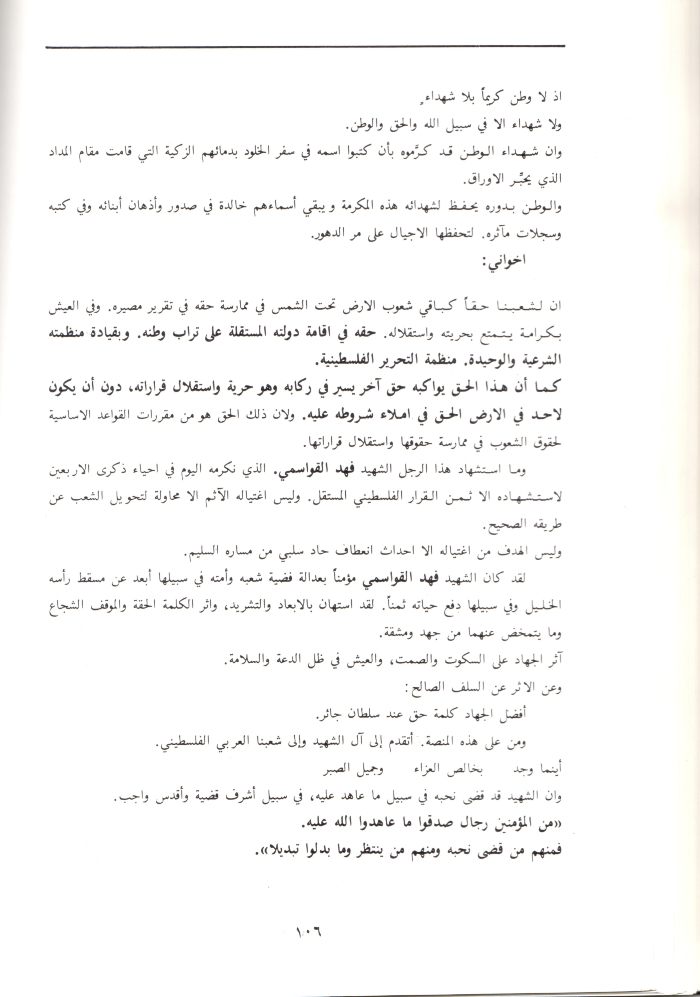 اذ لا وطن كريماً بلا شهداء.
ولا شهداء الا في سبيل الله والحق والوطن.
وان شهداء الوطن قد كرَّموه بأن كتبوا اسمه في سفر الخلود بدمائهم الزكية التي قامت مقام المداد
الذي يحبِّر الاوراق.
والوطن بدوره يحفظ لشهدائه هذه المكرمة ويبقي أسماءهم خالدة في صدور وأذهان أبنائه وفي كتبه
وسجلات مآثره. لتحفظها الاجيال على مر الدهور.
اخواني:
ان لشعبنا حقاً كباقي شعوب الارض تحت الشمس في ممارسة حقه في تقرير مصيره. وفي العيش
بكرامة يتمتع بحريته واستقلاله. حقه في اقامة دولته المستقلة على تراب وطنه. وبقيادة منظمته
الشرعية والوحيدة. منظمة التحرير الفلسطينية.
كما أن هذا الحق يواكبه حق آخر يسير في ركابه وهو حرية واستقلال قراراته، دون أن يكون
لاحد في الارض الحق في املاء شروطه عليه. ولان ذلك الحق هو من مقررات القواعد الاساسية
لحقوق الشعوب في ممارسة حقوقها واستقلال قراراتها.
وما استشهاد هذا الرجل الشهيد فهد القواسمي. الذي نكرمه اليوم في احياء ذكرى الاربعين
لاستشهاده الا ثمن القرار الفلسطيني المستقل. وليس اغتياله الآثم الا محاولة لتحويل الشعب عن
طريقه الصحيح.
وليس الهدف من اغتياله الا احداث انعطاف حاد سلبي من مساره السليم.
لقد كان الشهيد فهد القواسمي مؤمناً بعدالة قضية شعبه وأمته في سبيلها أبعد عن مسقط رأسه
الخليل وفي سبيلها دفع حياته ثمناً. لقد استهان بالابعاد والتشريد، واثر الكلمة الحقة والموقف الشجاع
وما يتمخض عنهما من جهد ومشقة.
آثر الجهاد على السكوت والصمت، والعيش في ظل الدعة والسلامة.
وعن الاثر عن السلف الصالح:
أفضل الجهاد كلمة حق عند سلطان جائر.
ومن على هذه المنصة. أتقدم إلى آل الشهيد وإلى شعبنا العربي الفلسطيني.
أينما وجد بخالص العزاء وجميل الصبر
وان الشهيد قد قضى نحبه في سبيل ما عاهد عليه، في سبيل أشرف قضية وأقدس واجب.
«من المؤمنين رجال صدقوا ما عاهدوا الله عليه.
فمنهم من قضى نحبه ومنهم من ينتظر وما بدلوا تبديلا».
١٠٦